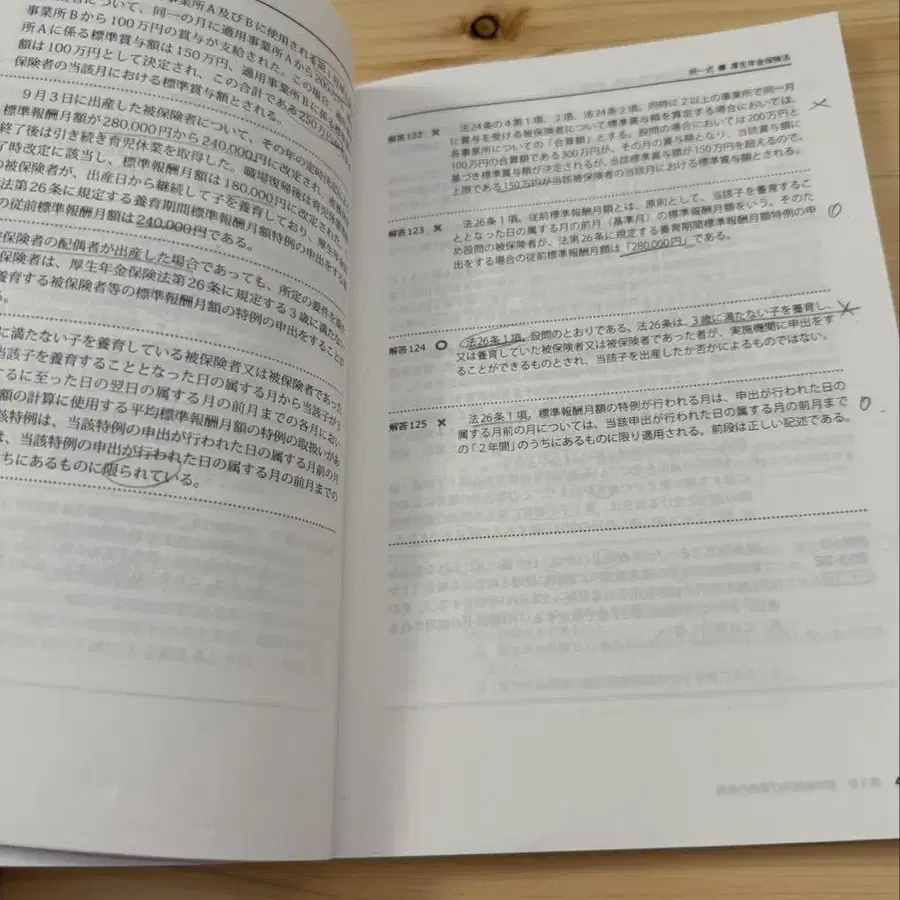 事業所A及びBに使用される第1号
者について、同一の月に適用事業所Aから200万円
事業所Bから100万円の賞与が支給された。この場合、
所Aに係る標準賞与額は150万円、適用事業所Bに係る標準
額は100万円として決定され、この合計である250万円が
保険者の当該月における標準賞与額とされる。
9月3日に出産した被保険者について、その年の定時決定に
標準報酬月額が280,000円から240,000円に改定され、
終了後は引き続き育児休業を取得した。職場復帰後は育児休業
了時改定に該当し、標準報酬月額は180,000円に改定された。
の被保険者が、出産日から継続して子を養育しており、厚生年
法第26条に規定する養育期間標準報酬月額特例の申出をする
の従前標準報酬月額は240,000円である。
保険者の配偶者が出産した場合であっても、所定の要件を
保険者は、厚生年金保険法第26条に規定する3歳に満たない
養育する被保険者等の標準報酬月額の特例の申出をすることが
る。
に満たない子を養育している被保険者又は被保険者であった
当該子を養育することとなった日の属する月から当該子が3
するに至った日の翌日の属する月の前月までの各月におい
額の計算に使用する平均標準報酬月額の特例の取扱いがあ
該特例は、当該特例の申出が行われた日の属する月前の月
は、当該特例の申出が行われた日の属する月の前月までの
ちにあるものに限られている。
択一式 厚生年金保険法
解答122 × 法24条の4第1項、2項、法24条2項。同時に2以上の事業所で同一月
に賞与を受ける被保険者について標準賞与額を算定する場合においては、
各事業所についての「合算額」とする。設問の場合においては200万円と
100万円の合算額である300万円が、その月の賞与額となり、当該賞与額に
基づき標準賞与額が決定されるが、当該標準賞与額が150万円を超えるので、
上限である150万円が当該被保険者の当該月における標準賞与額とされる。
×
解答123 × 法26条1項。従前標準報酬月額とは、原則として、当該子を養育するこ
ととなった日の属する月の前月(基準月)の標準報酬月額をいう。そのた
め設問の被保険者が、法第26条に規定する養育期間標準報酬月額特例の申
出をする場合の従前標準報酬月額は「280,000円」である。
○
解答124 ○ 法26条1項。設問のとおりである。法26条は、3歳に満たない子を養育し、
又は養育していた被保険者又は被保険者であった者が、実施機関に申出をす
ることができるものとされ、当該子を出産したか否かによるものではない。
×
解答125 × 法26条1項。標準報酬月額の特例が行われる月は、申出が行われた日の
属する月前の月については、当該申出が行われた日の属する月の前月まで
の「2年間」のうちにあるものに限り適用される。前段は正しい記述である。
○